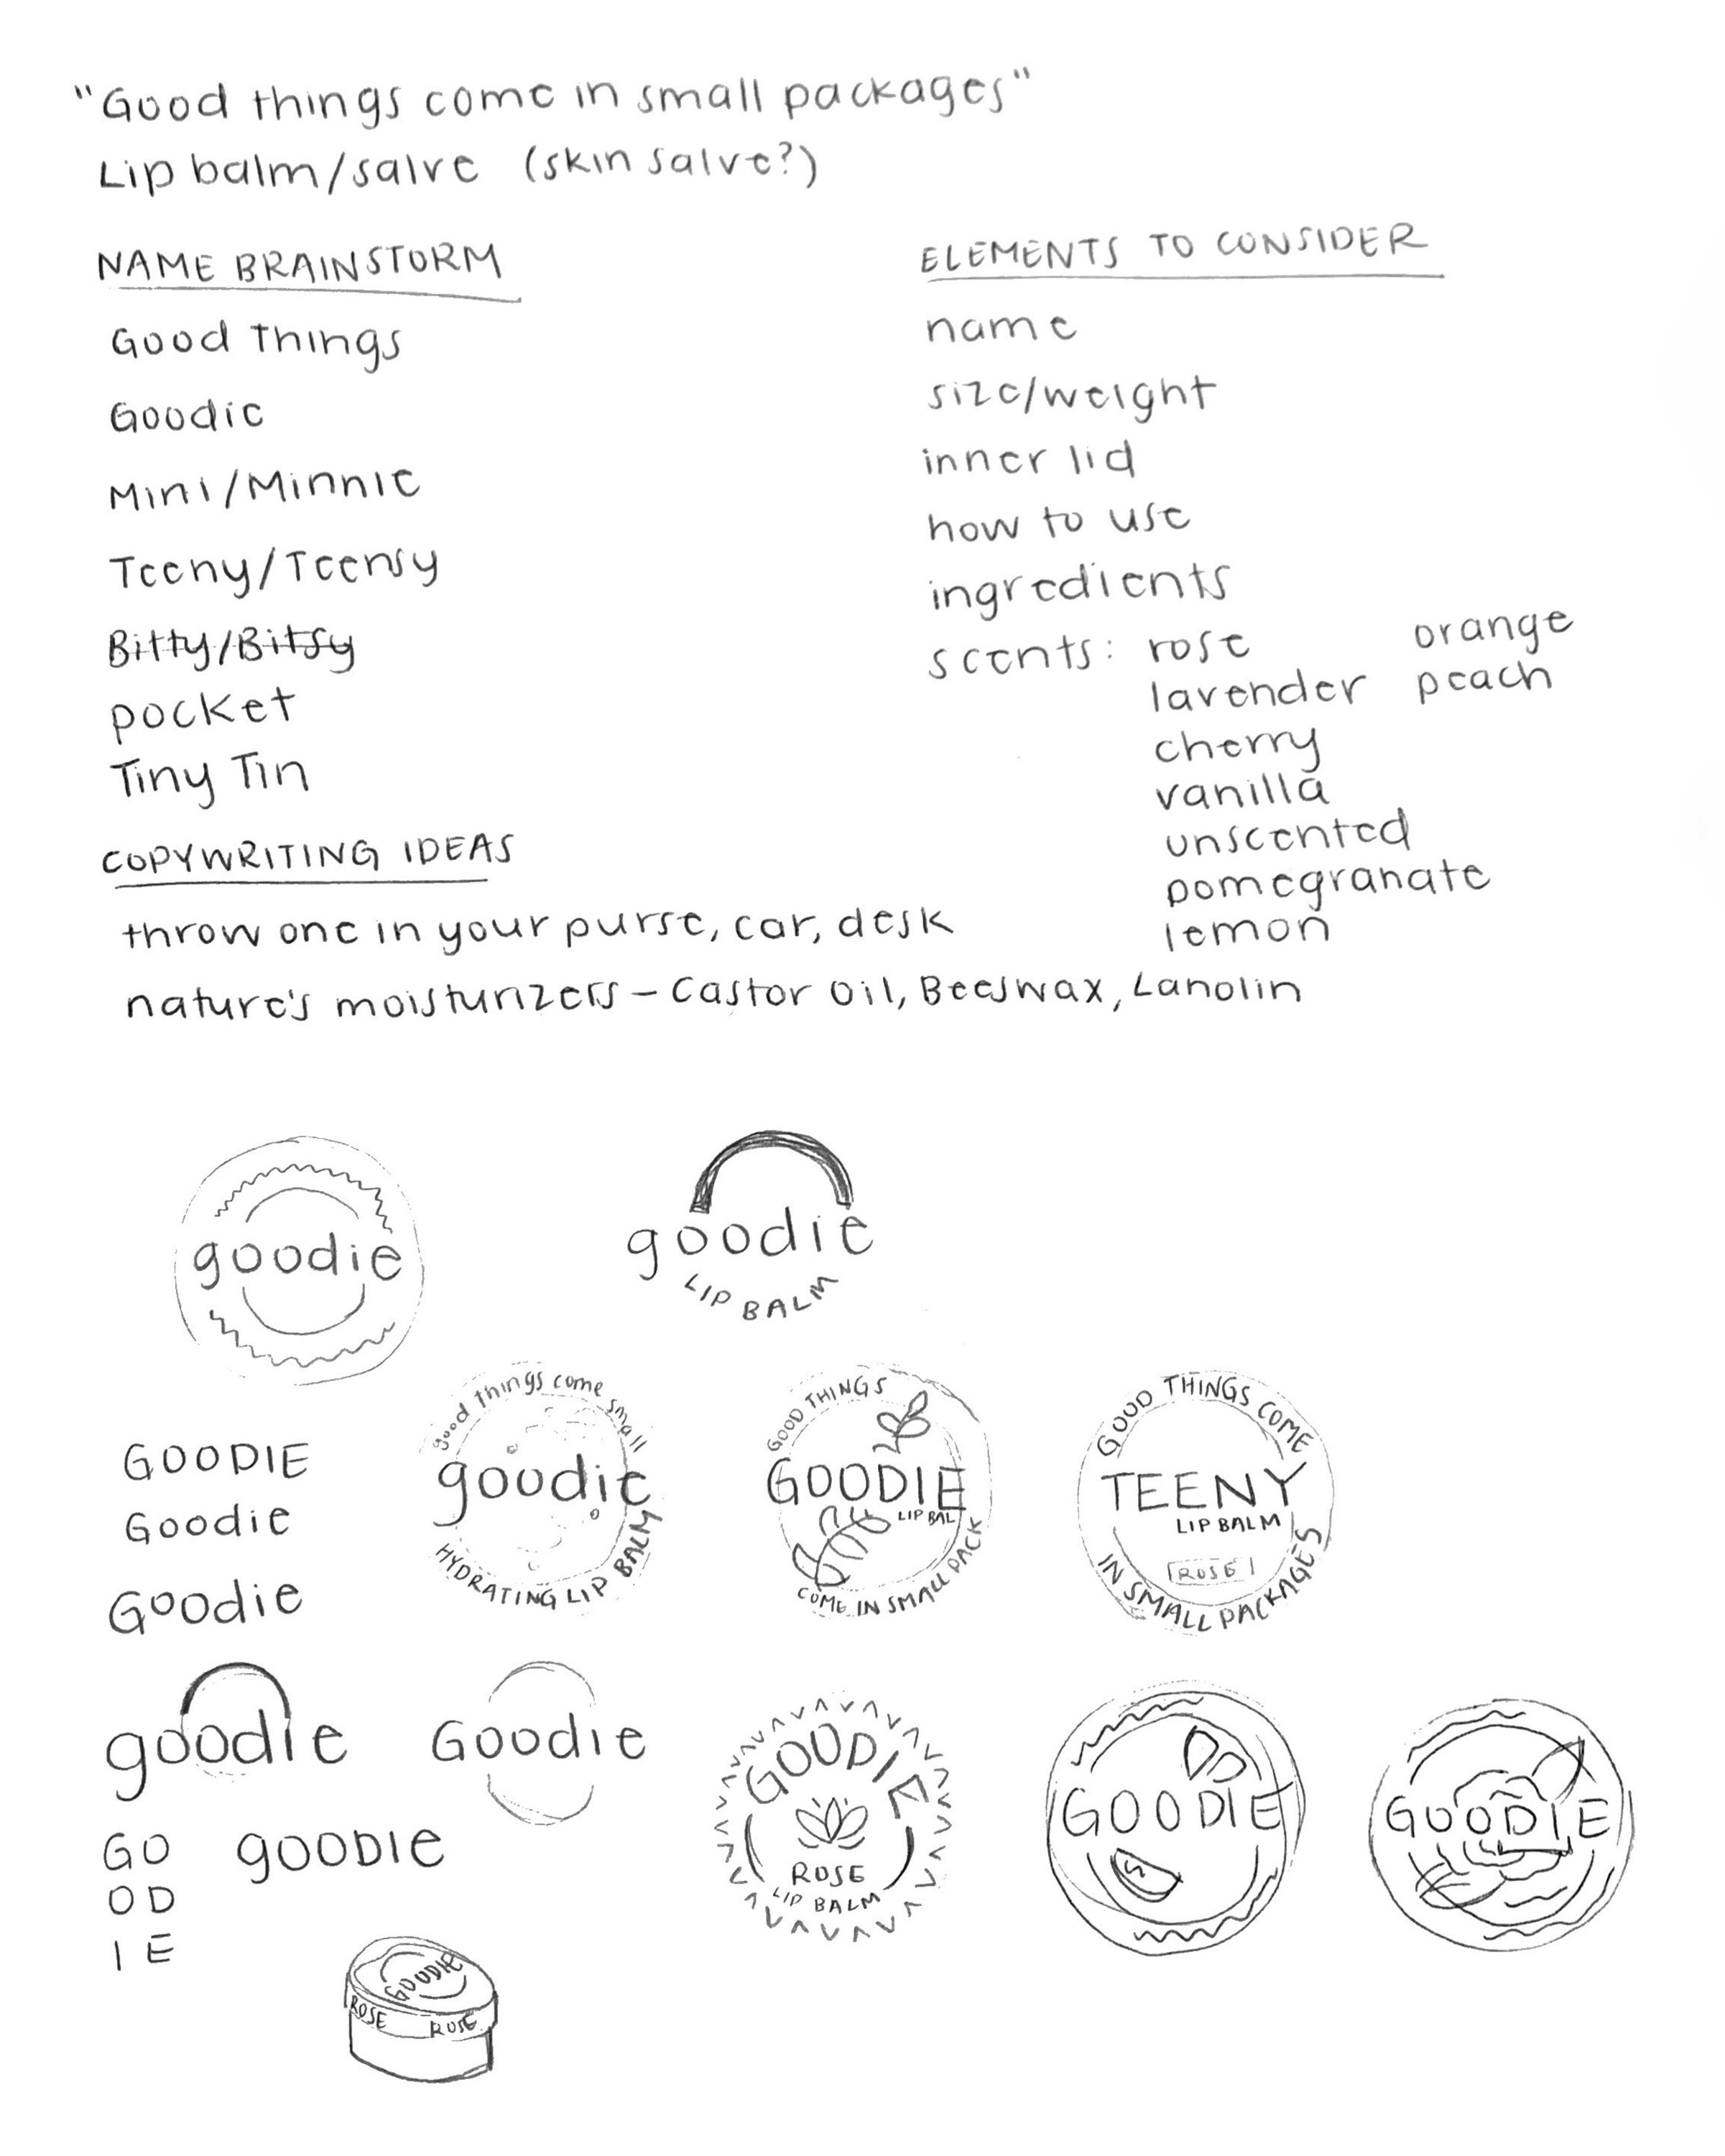 "Good things come in small packages"
Lip balm/salve (skin salve?)
NAME BRAINSTORM
Good Things
Goodie
Mini/Minnie
Teeny/Teensy
Bitty/Bitsy
pocket
Tiny Tin
COPYWRITING IDEAS
throw one in your purse, car, desk
nature's moisturizers – Castor Oil, Beeswax, Lanolin
ELEMENTS TO CONSIDER
name
size/weight
inner lid
how to use
ingredients
scents: rose orange
lavender peach
cherry
vanilla
unscented
pomegranate
lemon
goodie
goodie
LIP BALM
GOODIE
Goodie
Goodie
good things come small
goodie
HYDRATING LIP BALM
GOOD THINGS
GOODIE
LIP BAL
COME IN SMALL PACK
GOOD THINGS COME
TEENY
LIP BALM
ROSE
IN SMALL PACKAGES
goodie
Goodie
GO
OD
IE
gOODIE
GOODIE
ROSE
LIP BALM
GOODIE
GOODIE
GOODIE
ROSE ROSE